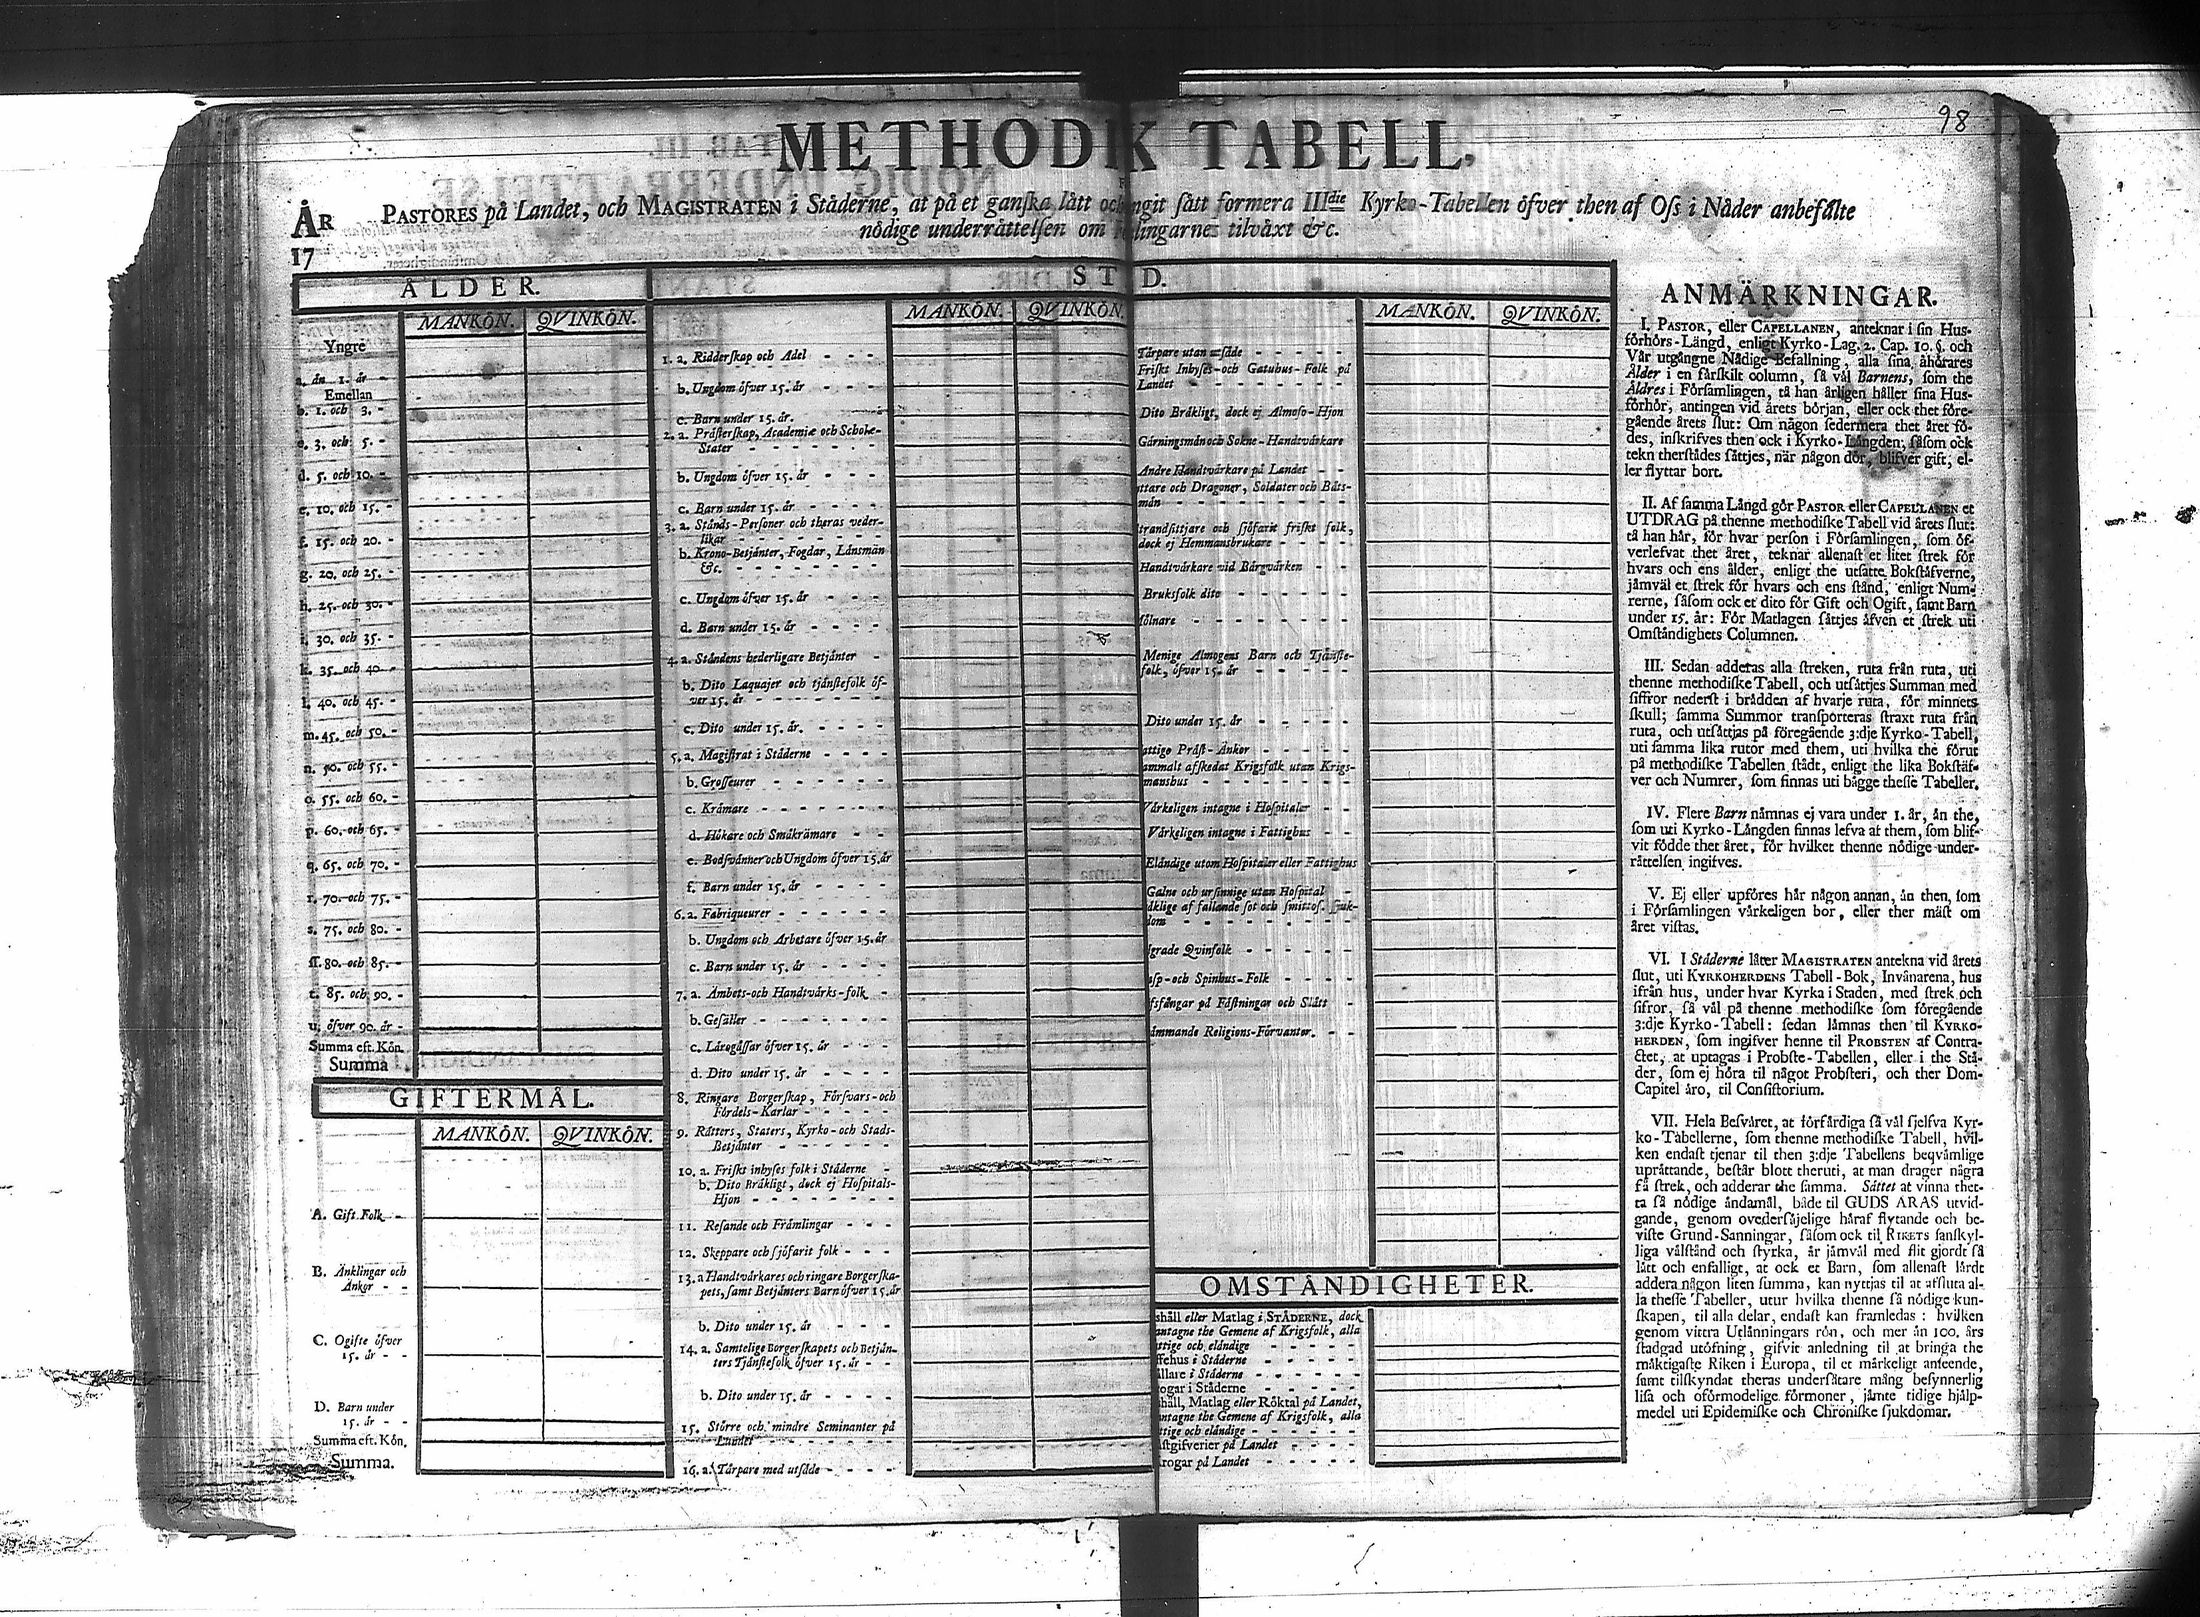 98
METHODIK TABELL,
ÅR
17
PASTORES på Landet, och MAGISTRATEN i Städerne, at på et ganska lätt och sätt formera IIIdie Kyrko-Tabellen öfver then af Oss i Nåder anbefalte
nödige underrättelsen om tilväxt &c.
ÅLDER.
MANKÖN. QVINKÖN.
Yngre
a. än 1. år -
Emellan
b. 1. och 3. -
c. 3. och 5. -
d. 5. och 10. -
e. 10. och 15. -
f. 15. och 20. -
g. 20. och 25. -
h. 25. och 30. -
i. 30. och 35. -
k. 35. och 40. -
l. 40. och 45. -
m. 45. och 50. -
n. 50. och 55. -
o. 55. och 60. -
p. 60. och 65. -
q. 65. och 70. -
r. 70. och 75. -
s. 75. och 80. -
ff. 80. och 85. -
t. 85. och 90. -
u. öfver 90. år -
Summa eft. Kön.
Summa
GIFTERMÅL.
MANKÖN. QVINKÖN.
A. Gift Folk -
B. Änklingar och
Änkor - -
C. Ogifte öfver
15. år - -
D. Barn under
15. år - -
Summa eft. Kön.
Summa.
ST D.
MANKÖN. QVINKÖN.
1. a. Ridderskap och Adel - - - -
b. Ungdom öfver 15. år - - - -
c. Barn under 15. år.
2. a. Prästerskap, Academiæ och Scholæ-
Stater - - - - - - -
b. Ungdom öfver 15. år - - - -
c. Barn under 15. år - - - -
3. a. Stånds-Personer och theras veder-
likar - - - - - - - -
b. Krono-Betjänter, Fogdar, Länsmän
&c. - - - - - - - -
c. Ungdom öfver 15. år - - - -
d. Barn under 15. år - - - -
4. a. Ståndens hederligare Betjänter -
b. Dito Laquajer och tjänstefolk öf-
ver 15. år - - - - - - -
c. Dito under 15. år. - - - -
5. a. Magistrat i Städerne - - - -
b. Grosseurer - - - - - - -
c. Krämare - - - - - - -
d. Hökare och Småkrämare - - -
e. Bodsvänner och Ungdom öfver 15. år
f. Barn under 15. år - - - -
6. a. Fabriqueurer - - - - - -
b. Ungdom och Arbetare öfver 15. år
c. Barn under 15. år - - - -
7. a. Ämbets-och Handtvärks-folk -
b. Gesäller - - - - - - -
c. Läregåssar öfver 15. år - - -
d. Dito under 15. år - - - -
8. Ringare Borgerskap, Försvars-och
Fördels-Karlar - - - - -
9. Rätters, Staters, Kyrko-och Stads-
Betjänter - - - - - - -
10. a. Friskt inhyses folk i Städerne -
b. Dito Bräkligt, dock ej Hospitals-
Hjon - - - - - - - -
11. Resande och Främlingar - - -
12. Skeppare och sjöfarit folk - - -
13. a Handtvärkares och ringare Borgerska-
pets, samt Betjänters Barn öfver 15. år
b. Dito under 15. år - - - -
14. a. Samtelige Borgerskapets och Betjän-
ters Tjänstefolk öfver 15. år - -
b. Dito under 15. år - - - -
15. Större och mindre Seminanter på
Landet - - - - - - -
16. a. Tärpare med utsäde - - - -
MANKÖN. QVINKÖN.
Tärpare utan utsäde - - - - -
Friskt Inhyses-och Gatuhus-Folk på
Landet - - - - - - -
Dito Bräkligt, dock ej Almoso-Hjon
Gärningsmän och Sokne-Handtvärkare
Andre Handtvärkare på Landet - -
ttare och Dragoner, Soldater och Båts-
män - - - - - - - -
trandsittjare och sjöfarit friskt folk,
dock ej Hemmansbrukare - - - -
Handtvärkare vid Bärgvärken - -
Bruksfolk dito - - - - - -
lölnare - - - - - - - -
Menige Almogens Barn och Tjänste-
folk, öfver 15. år - - - - -
Dito under 15. år - - - - -
attige Präst-Änkor - - - - -
ammalt afskedat Krigsfolk utan Krigs-
manshus - - - - - - -
Värkeligen intagne i Hospitaler - -
Värkeligen intagne i Fattighus - -
Eländige utom Hospitaler eller Fattighus
Galne och ursinnige utan Hospital -
äklige af fallande sot och smittos. sjuk-
dom - - - - - - - -
lgrade Qvinfolk - - - - - -
osp-och Spinhus-Folk - - - - -
fsfångar på Fästningar och Slått -
ämmande Religions-Förvanter. - -
OMSTÄNDIGHETER.
shåll eller Matlag i STÄDERNE, dock
antagne the Gemene af Krigsfolk, alla
ttige och eländige - - - - -
ffehus i Städerne - - - - -
ällare i Städerne - - - - -
rogar i Städerne - - - - -
shåll, Matlag eller Röktal på Landet,
antagne the Gemene af Krigsfolk, alla
ttige och eländige - - - - -
ästgifverier på Landet - - - -
rogar på Landet - - - - -
ANMÄRKNINGAR.
I. PASTOR, eller CAPELLANEN, anteknar i sin Hus-
förhörs-Längd, enligt Kyrko-Lag. 2. Cap. 10. §. och
Vår utgångne Nådige Befallning, alla sina åhörares
Ålder i en särskilt column, så väl Barnens, som the
Äldres i Församlingen, tå han årligen håller sina Hus-
förhör, antingen vid årets början, eller ock thet före-
gående årets slut: Om någon sedermera thet året fö-
des, inskrifves then ock i Kyrko-Längden: såsom ock
tekn therstädes sättjes, när någon dör, blifver gift, el-
ler flyttar bort.
II. Af samma Längd gör PASTOR eller CAPELLANEN et
UTDRAG på thenne methodiske Tabell vid årets slut:
tå han här, för hvar person i Församlingen, som öf-
verlefvat thet året, teknar allenast et litet strek för
hvars och ens ålder, enligt the utsatte Bokstäfverne,
jämväl et strek för hvars och ens stånd, enligt Num-
rerne, såsom ock et dito för Gift och Ogift, samt Barn
under 15. år: För Matlagen sättjes äfven et strek uti
Omständighets Columnen.
III. Sedan adderas alla streken, ruta från ruta, uti
thenne methodiske Tabell, och utsättjes Summan med
siffror nederst i brädden af hvarje ruta, för minnets
skull; samma Summor transporteras straxt ruta från
ruta, och utsättjas på föregående 3:dje Kyrko-Tabell,
uti samma lika rutor med them, uti hvilka the förut
på methodiske Tabellen stådt, enligt the lika Bokstäf-
ver och Numrer, som finnas uti bägge thesse Tabeller.
IV. Flere Barn nämnas ej vara under 1. år, än the,
som uti Kyrko-Längden finnas lefva af them, som blif-
vit födde thet året, för hvilket thenne nödige under-
rättelsen ingifves.
V. Ej eller upföres här någon annan, än then, som
i Församlingen värkeligen bor, eller ther mäst om
året vistas.
VI. I Städerne låter MAGISTRATEN antekna vid årets
slut, uti KYRKOHERDENS Tabell-Bok, Invånarena, hus
ifrån hus, under hvar Kyrka i Staden, med strek och
sifror, så väl på thenne methodiske som föregående
3:dje Kyrko-Tabell: sedan lämnas then til KYRKO-
HERDEN, som ingifver henne til PROBSTEN af Contra-
ctet, at uptagas i Probste-Tabellen, eller i the Stä-
der, som ej höra til något Probsteri, och ther Dom-
Capitel äro, til Consistorium.
VII. Hela Besväret, at förfärdiga så väl sjelfva Kyr-
ko-Tabellerne, som thenne methodiske Tabell, hvil-
ken endast tjenar til then 3:dje Tabellens beqvämlige
uprättande, består blott theruti, at man drager några
få strek, och adderar the samma. Sättet at vinna thet-
ta så nödige ändamål, både til GUDS ÄRAS utvid-
gande, genom ovedersäjelige häraf flytande och be-
viste Grund-Sanningar, såsom ock til RIKETS sanskyl-
liga välstånd och styrka, är jämväl med flit gjordt så
lätt och enfalligt, at ock et Barn, som allenast lärdt
addera någon liten summa, kan nyttjas til at afsluta al-
la thesse Tabeller, utur hvilka thenne så nödige kun-
skapen, til alla delar, endast kan framledas: hvilken
genom vittra Utlänningars rön, och mer än 100. års
stadgad utöfning, gifvit anledning til at bringa the
mäktigaste Riken i Europa, til et märkeligt anseende,
samt tilskyndat theras undersåtare mång besynnerlig
lisa och oförmodelige förmoner, jämte tidige hjälp-
medel uti Epidemiske och Chroniske sjukdomar.